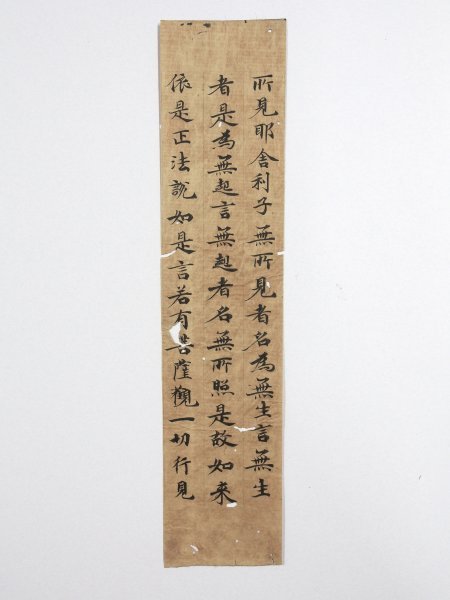 所見耶舍利子無所見者名為無生言無生
者是為無起言無起者名無所照是故如来
依是正法説如是言若有菩薩觀一切行見